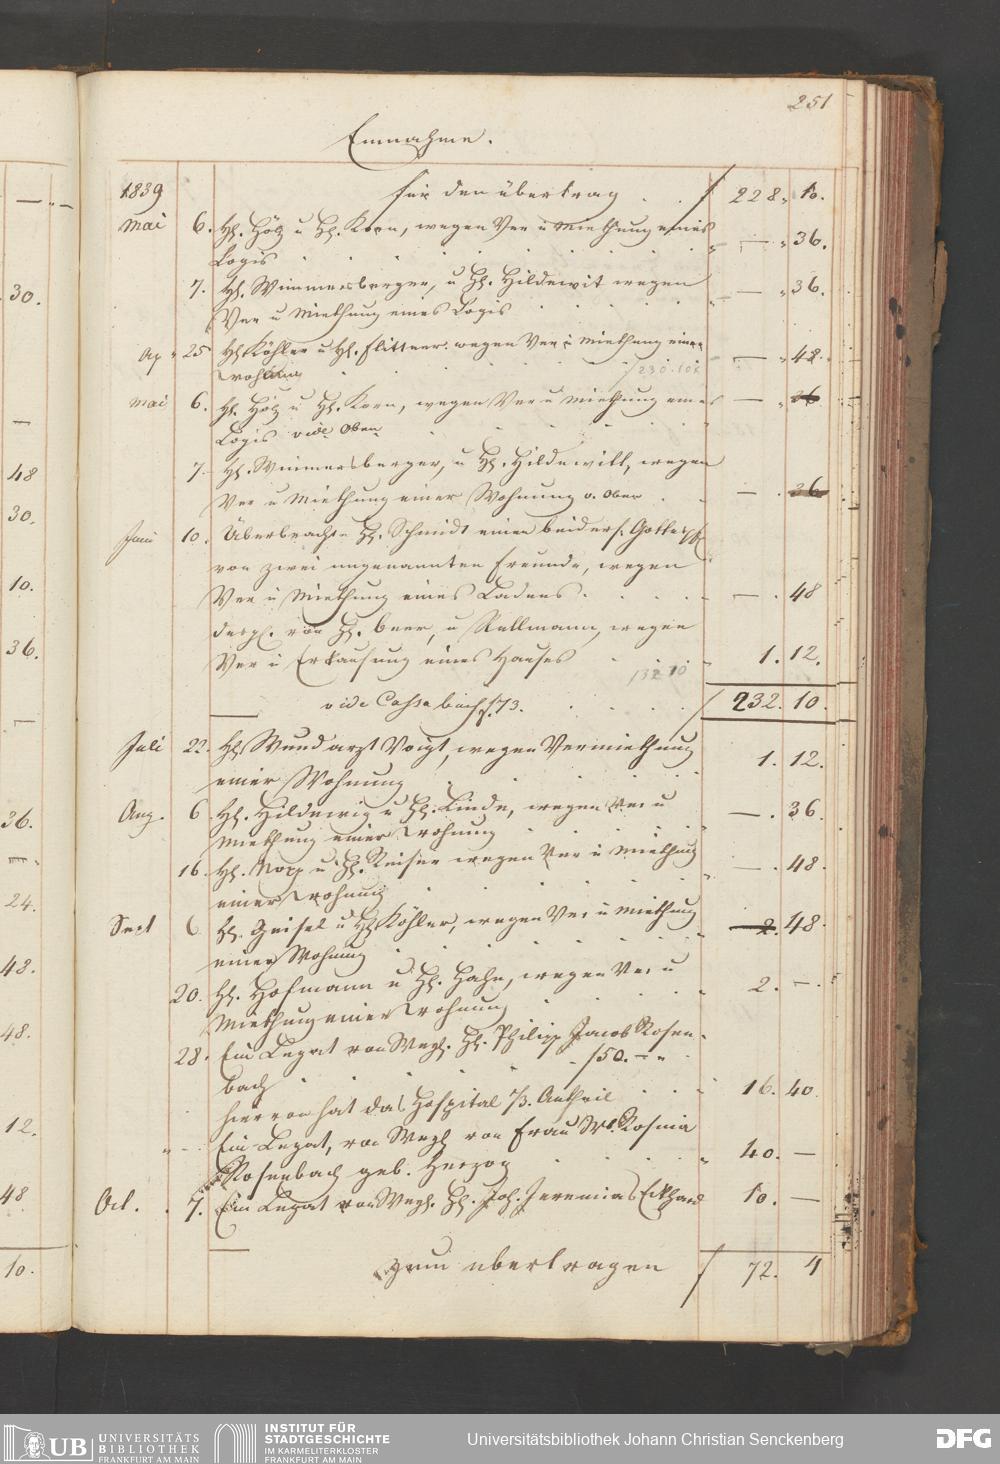 251
Einnahme.
1839 für den übertrag . . f 228. 10.
Mai 6. Hl. Hötz u Hl. Korn, wegen Ver u Miethung eines — " 36.
Logis
7. Hl. Wimmersberger, u Hl. Hildewit wegen — " 36.
Ver u Miethung eines Logis
Ap " 25 Hl Köhler u Hl. Flittner. wegen Ver u Miethung einer — " 48.
Wohnung
Mai 6. Hl. Hötz u Hl. Korn, wegen Ver u Miethung eines — " 36
Logis vide Oben
7. Hl. Wimmersberger, u Hl. Hildewitt, wegen
Ver u Miethung einer Wohnung v. Oben — . 36
Juni 10. Überbrachte Hl. Schmidt einen
von zwei ungenannten Freunde, wegen
Ver u Miethung eines Ladens — . 48
desgl. von Hl. Beer, u Rullmann, wegen
Ver u Erkaufung eines Hauses 1. 12.
132 10
vide Cassa buch f. 73. f 232. 10.
Juli 22. Hl Wundarzt Voigt, wegen Vermiethung
einer Wohnung 1. 12.
Aug. 6 Hl. Hildewig u Hl. Linde, wegen Ver u — . 36.
Miethung einer Wohnung
16. Hl. u Hl. Reiser wegen Ver u Miethung — . 48.
einer Wohnung
Sept 6 Hl. Geisel u Hl Köhler, wegen Ver u Miethung 2. 48.
einer Wohnung
20. Hl. Hofmann u Hl. Hahn, wegen Ver u 2. — .
Miethung einer Wohnung
28. Ein Legat von Wegl. Hl. Philipp Jacob Rosen-
bach f 50. — "
hiervon hat das Hospital 1/3. Antheil 16. 40.
" — Ein Legat, von Wegl von Frau Rosina
Rosenbach geb. Herzog 40. —
Oct. 7. Ein Legat von Wegl. Hl. Joh. Jeremias Eckhard 10. —
zum übertragen f 72. 4
30.
48
30.
10.
36.
36.
24.
48.
48.
12.
48
10.
UB UNIVERSITÄTS
BIBLIOTHEK
FRANKFURT AM MAIN
INSTITUT FÜR
STADTGESCHICHTE
IM KARMELITERKLOSTER
FRANKFURT AM MAIN
Universitätsbibliothek Johann Christian Senckenberg
DFG